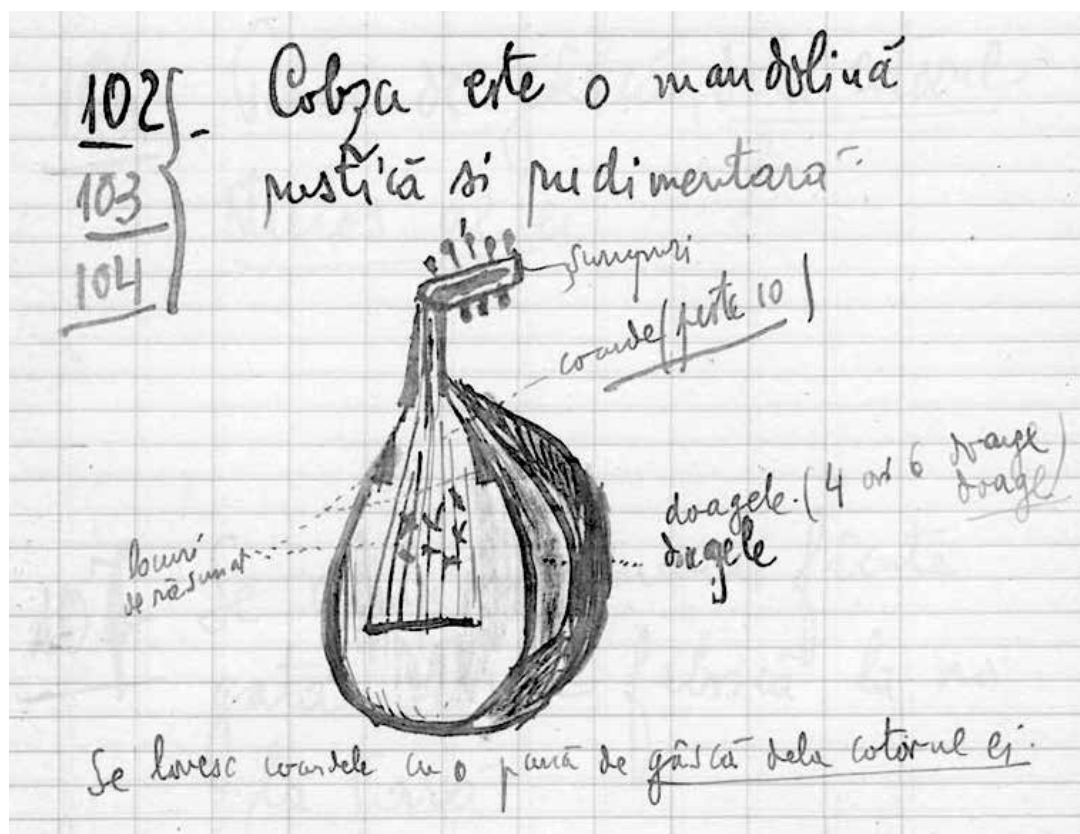 102
103
104
Cobza este o mandolină
rustică si rudimentară
coarde (peste 10)
doagele. (4 ori 6 doage
doage)
doagele
locuri
de răsunat
Se lovesc coardele cu o pană de gâscă dela cotorul ei.